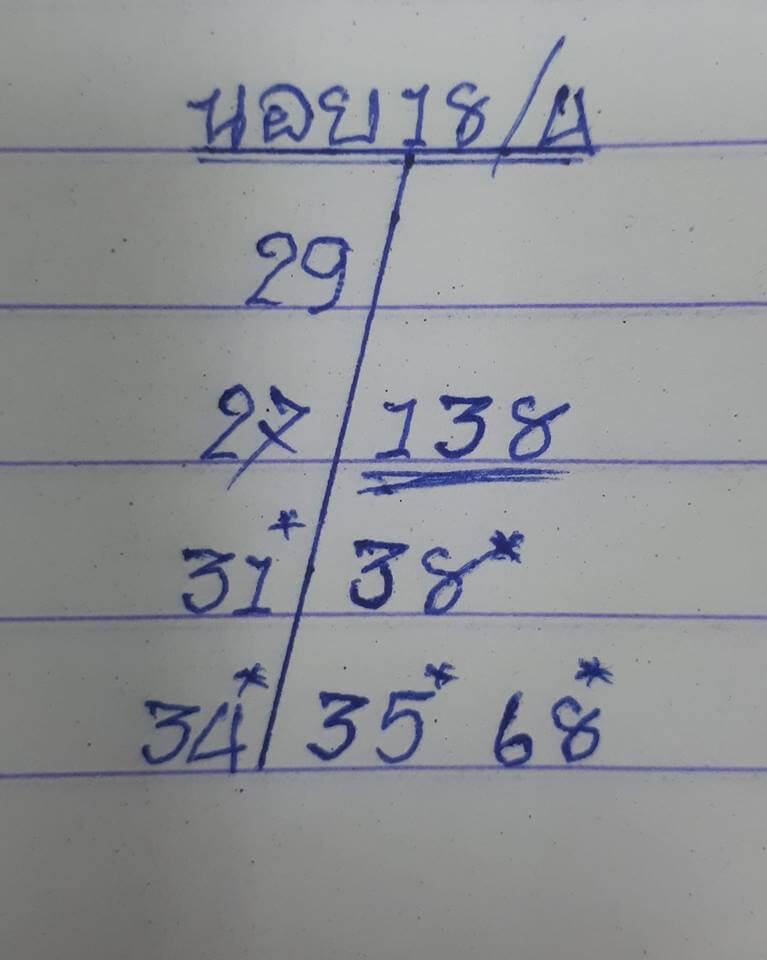 นอย 18/น
29
27 138
31* 38*
34* 35* 68*